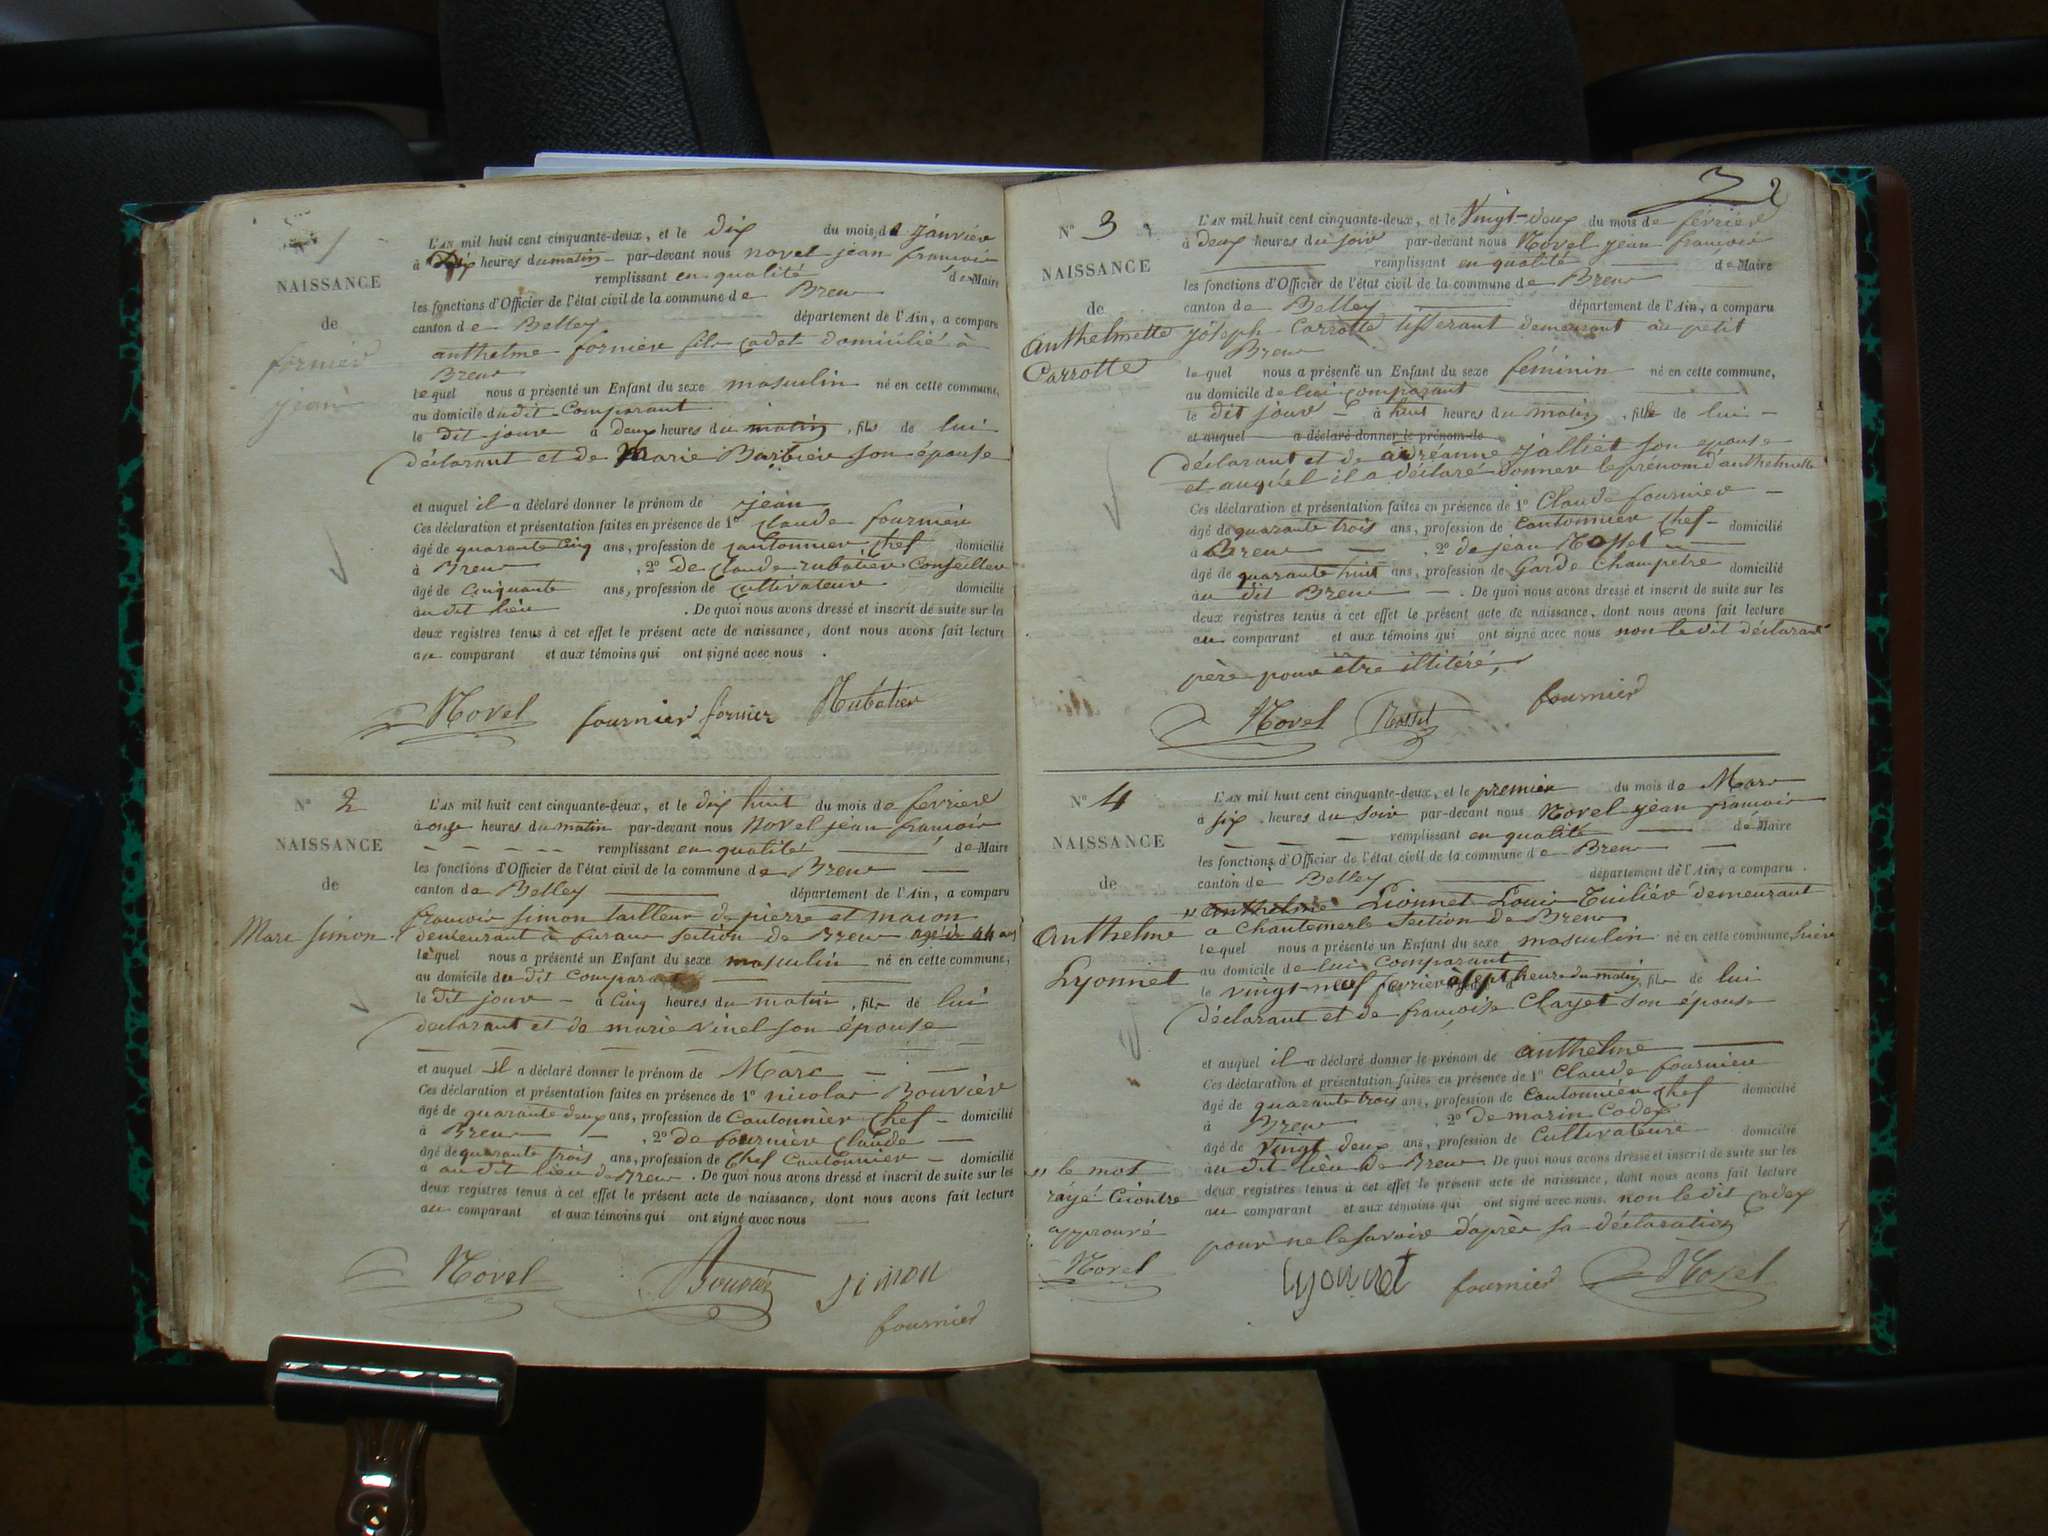 1
NAISSANCE
de
fornier
jean
L'AN mil huit cent cinquante-deux, et le dix du mois de janvier
à dix heures du matin par-devant nous novel jean francois
remplissant en qualité de Maire
les fonctions d'Officier de l'état civil de la commune de Bren
canton de Belley département de l'Ain, a comparu
anthelme fornier fils cadet domicilié à
Bren
lequel nous a présenté un Enfant du sexe masculin né en cette commune,
au domicile dudit Comparant
le dit jour à deux heures du matin, fils de lui
déclarant et de Marie Barbier son épouse
et auquel il a déclaré donner le prénom de jean
Ces déclaration et présentation faites en présence de 1° Claude fournier
âgé de quarante cinq ans, profession de cantonnier chef domicilié
à Bren , 2° de Claude rubatier Conseiller
âgé de cinquante ans, profession de cultivateur domicilié
au dit lieu . De quoi nous avons dressé et inscrit de suite sur les
deux registres tenus à cet effet le présent acte de naissance, dont nous avons fait lecture
au comparant et aux témoins qui ont signé avec nous .
Novel fournier fornier Rubatier
N° 2
NAISSANCE
de
Marc Simon
L'AN mil huit cent cinquante-deux, et le dix huit du mois de fevrier
à onze heures du matin par-devant nous Novel jean francois
remplissant en qualité de Maire
les fonctions d'Officier de l'état civil de la commune de Bren
canton de Belley département de l'Ain, a comparu
francois Simon tailleur de pierre et macon
demeurant à furan section de Bren agé de 44 ans
lequel nous a présenté un Enfant du sexe masculin né en cette commune,
au domicile du dit comparant
le dit jour à Cinq heures du matin, fils de lui
declarant et de marie vinel son épouse
et auquel il a déclaré donner le prénom de Marc
Ces déclaration et présentation faites en présence de 1° nicolas Bouvier
âgé de quarante deux ans, profession de Cantonnier Chef domicilié
à Bren , 2° de fournier Claude
âgé de quarante trois ans, profession de Chef Cantonnier domicilié
à au dit lieu de Bren . De quoi nous avons dressé et inscrit de suite sur les
deux registres tenus à cet effet le présent acte de naissance, dont nous avons fait lecture
au comparant et aux témoins qui ont signé avec nous
Novel Bouvier simon
fournier
2
N° 3
NAISSANCE
de
Anthelmette
Carrotte
L'AN mil huit cent cinquante-deux, et le Vingt-deux du mois de février
à deux heures du soir par-devant nous Novel jean francois
remplissant en qualité de Maire
les fonctions d'Officier de l'état civil de la commune de Bren
canton de Belley département de l'Ain, a comparu
joseph Carrotte tisserant demeurant au petit
Bren
lequel nous a présenté un Enfant du sexe féminin né en cette commune,
au domicile de lui comparant
le dit jour à huit heures du matin, fille de lui
et auquel a déclaré donner le prénom de
déclarant et de adréanne jalliet son epouse
et auquel il a déclaré donner le prénom d'anthelmette
Ces déclaration et présentation faites en présence de 1° Claude fournier
âgé de quarante trois ans, profession de Cantonnier Chef domicilié
à Bren , 2° de jean Rosset
âgé de quarante huit ans, profession de Garde Champetre domicilié
au dit Bren . De quoi nous avons dressé et inscrit de suite sur les
deux registres tenus à cet effet le présent acte de naissance, dont nous avons fait lecture
au comparant et aux témoins qui ont signé avec nous non le dit déclarant
père pour être illitéré,
Novel Rosset fournier
N° 4
NAISSANCE
de
Anthelme
Lyonnet
L'AN mil huit cent cinquante-deux, et le premier du mois de Mars
à six heures du soir par-devant nous Novel jean francois
remplissant en qualité de Maire
les fonctions d'Officier de l'état civil de la commune de Bren
canton de Belley département de l'Ain, a comparu
anthelme Lionnet Louis Tuilier demeurant
a Chantemerle Section de Bren
lequel nous a présenté un Enfant du sexe masculin né en cette commune,
au domicile de lui comparant
le vingt-neuf fevrier à sept heure du matin, fils de lui
déclarant et de françoise Clayet son épouse
et auquel il a déclaré donner le prénom de anthelme
Ces déclaration et présentation faites en présence de 1° Claude fournier
âgé de quarante trois ans, profession de Cantonnier Chef domicilié
à Bren 2° de marin Codex
âgé de vingt deux ans, profession de Cultivateur domicilié
au dit lieu de Bren De quoi nous avons dressé et inscrit de suite sur les
deux registres tenus à cet effet le présent acte de naissance, dont nous avons fait lecture
au comparant et aux témoins qui ont signé avec nous. non le dit Codex
pour ne le savoir d'après sa déclaration
" le mot
rayé Ciontre
approuvé
Novel
Lyonnet fournier Novel